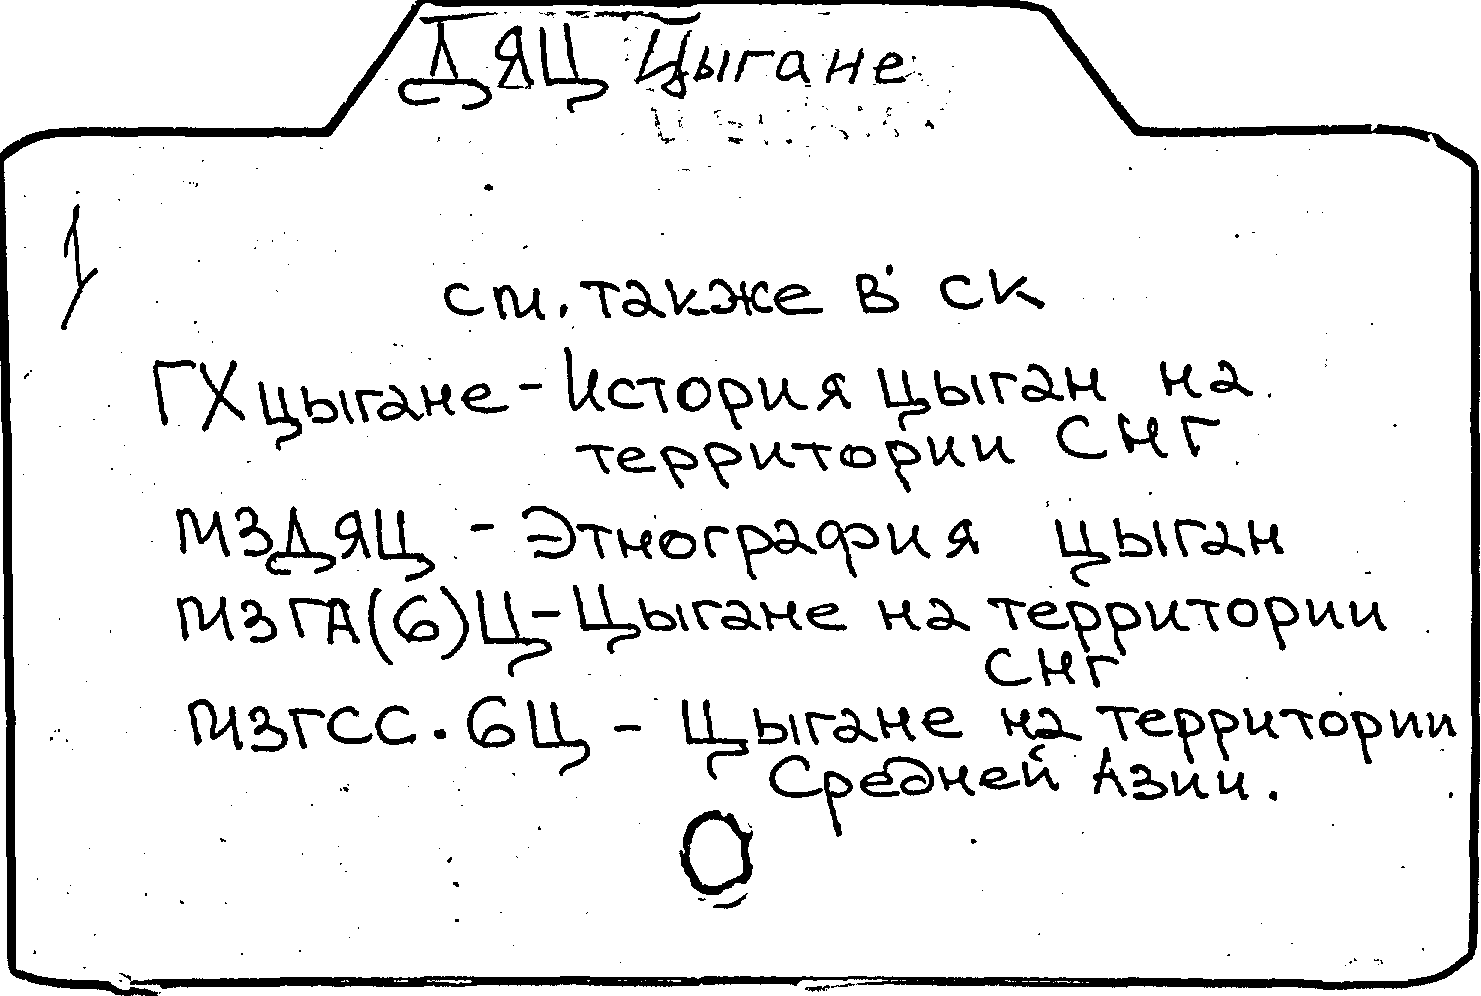 ДЯЦ Цыгане
1
см. также в ск
ГХцыгане - История цыган на
территории СНГ
МЗДЯЦ - Этнография цыган
МЗГА(6)Ц - Цыгане на территории
СНГ
МЗГСС.6Ц - Цыгане на территории
Средней Азии.